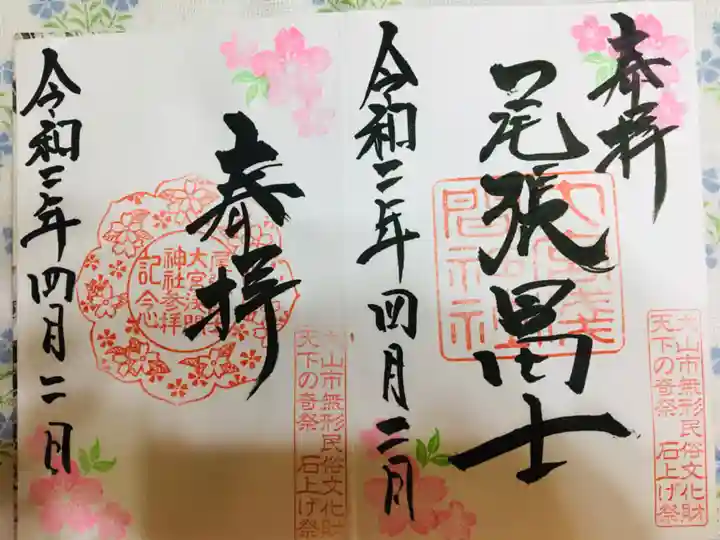 奉拝
尾張冨士
大宮浅間神社
犬山市無形民俗文化財
天下の奇祭 石上げ祭
令和二年四月二日
奉拝
大宮浅間
神社参拝
記念
犬山市無形民俗文化財
天下の奇祭 石上げ祭
令和二年四月二日